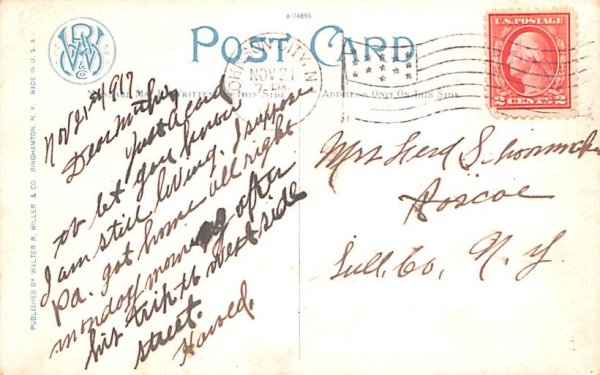 A-74885
POST CARD
JOHNSON CITY, N.Y.
NOV 21
7 PM
MESSAGE MAY BE WRITTEN ON THIS SIDE
ADDRESS ONLY ON THIS SIDE
U.S. POSTAGE
2 CENTS 2
PUBLISHED BY WALTER R. MILLER & CO. BINGHAMTON, N. Y. MADE IN U.S.A.
Nov 21st 1917
Dear Mother
Just a card
to let you know
I am still living. I suppose
Pa. got home all right
monday morning after
his trip to west side
street.
Harold.
Mrs Ferd Schoonmaker
Roscoe
Sull. Co. N. Y.